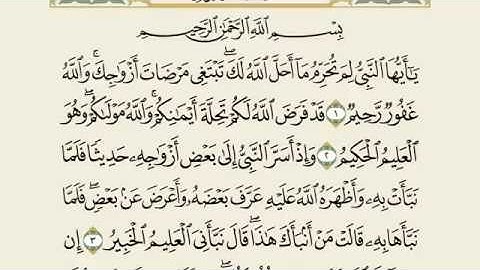 بِسْمِ اللَّهِ الرَّحْمَٰنِ الرَّحِيمِ
يَا أَيُّهَا النَّبِيُّ لِمَ تُحَرِّمُ مَا أَحَلَّ اللَّهُ لَكَ ۖ تَبْتَغِي مَرْضَاتَ أَزْوَاجِكَ ۚ وَاللَّهُ
غَفُورٌ رَّحِيمٌ ١ قَدْ فَرَضَ اللَّهُ لَكُمْ تَحِلَّةَ أَيْمَانِكُمْ ۚ وَاللَّهُ مَوْلَاكُمْ ۖ وَهُوَ
الْعَلِيمُ الْحَكِيمُ ٢ وَإِذْ أَسَرَّ النَّبِيُّ إِلَىٰ بَعْضِ أَزْوَاجِهِ حَدِيثًا فَلَمَّا
نَبَّأَتْ بِهِ وَأَظْهَرَهُ اللَّهُ عَلَيْهِ عَرَّفَ بَعْضَهُ وَأَعْرَضَ عَنْ بَعْضٍ ۖ فَلَمَّا
نَبَّأَهَا بِهِ قَالَتْ مَنْ أَنْبَأَكَ هَٰذَا ۖ قَالَ نَبَّأَنِيَ الْعَلِيمُ الْخَبِيرُ ٣ إِنْ